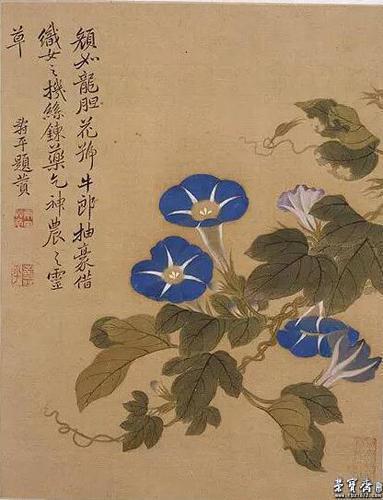 如龍胆花號牛郎抽豪借
織女之機絲鍊藥乞神農之靈
草
壽平題贊
榮寶齋